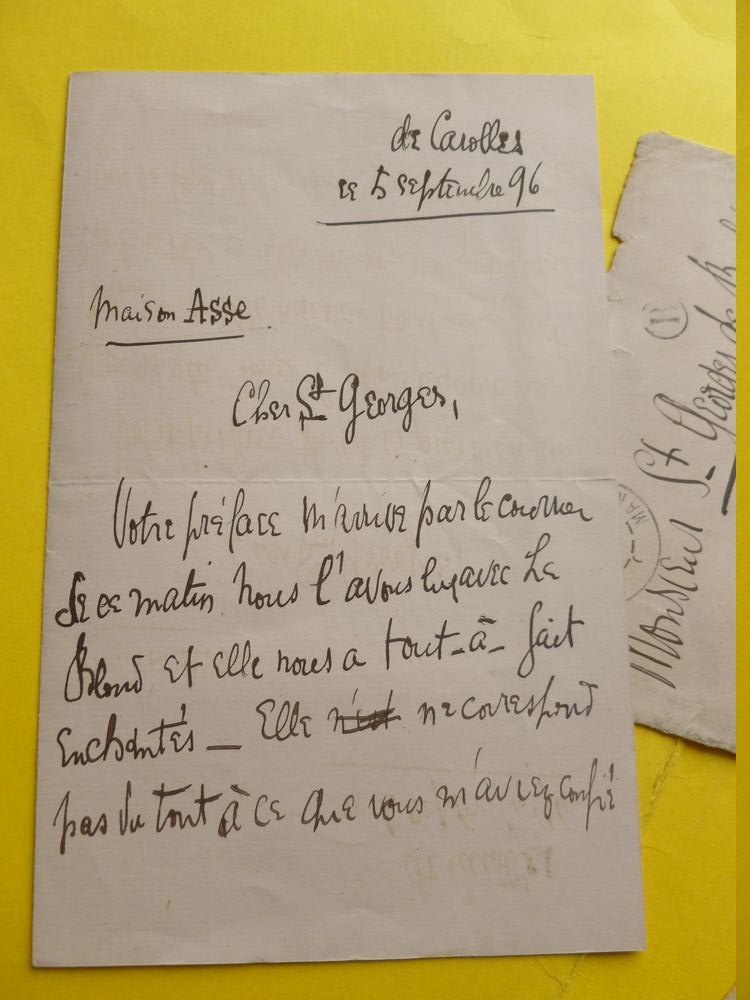 de Carolles
ce 5 septembre 96
Maison Asse
Cher St Georges,
Votre préface m'arrive par le courrier
de ce matin nous l'avons luy avec Le
Blond et elle nous a tout-à-fait
Enchantés — Elle n'est ne correspond
pas du tout à ce que vous m'aviez confié
Monsieur St Georges de